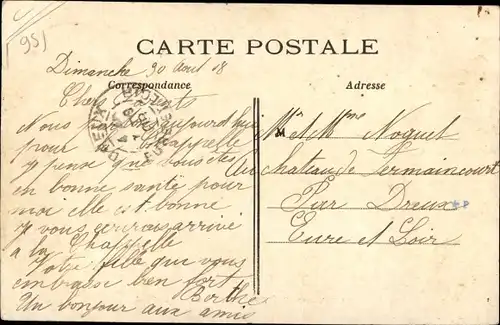 (95)
CARTE POSTALE
Dimanche 30 Aout 18
Correspondance
Adresse
Chers
Nous aujourd'hui
pour Chappelle
j'y pense que vous êtes
en bonne santé pour
moi elle est bonne
je vous ecrirais arrivé
à la Chappelle
Votre fille que vous
embrasse bien fort
Berthe
Un bonjour aux amis
Mr et Mme Noquet
Au chateau de Vermaincourt
Par Dreux
Eure et Loir